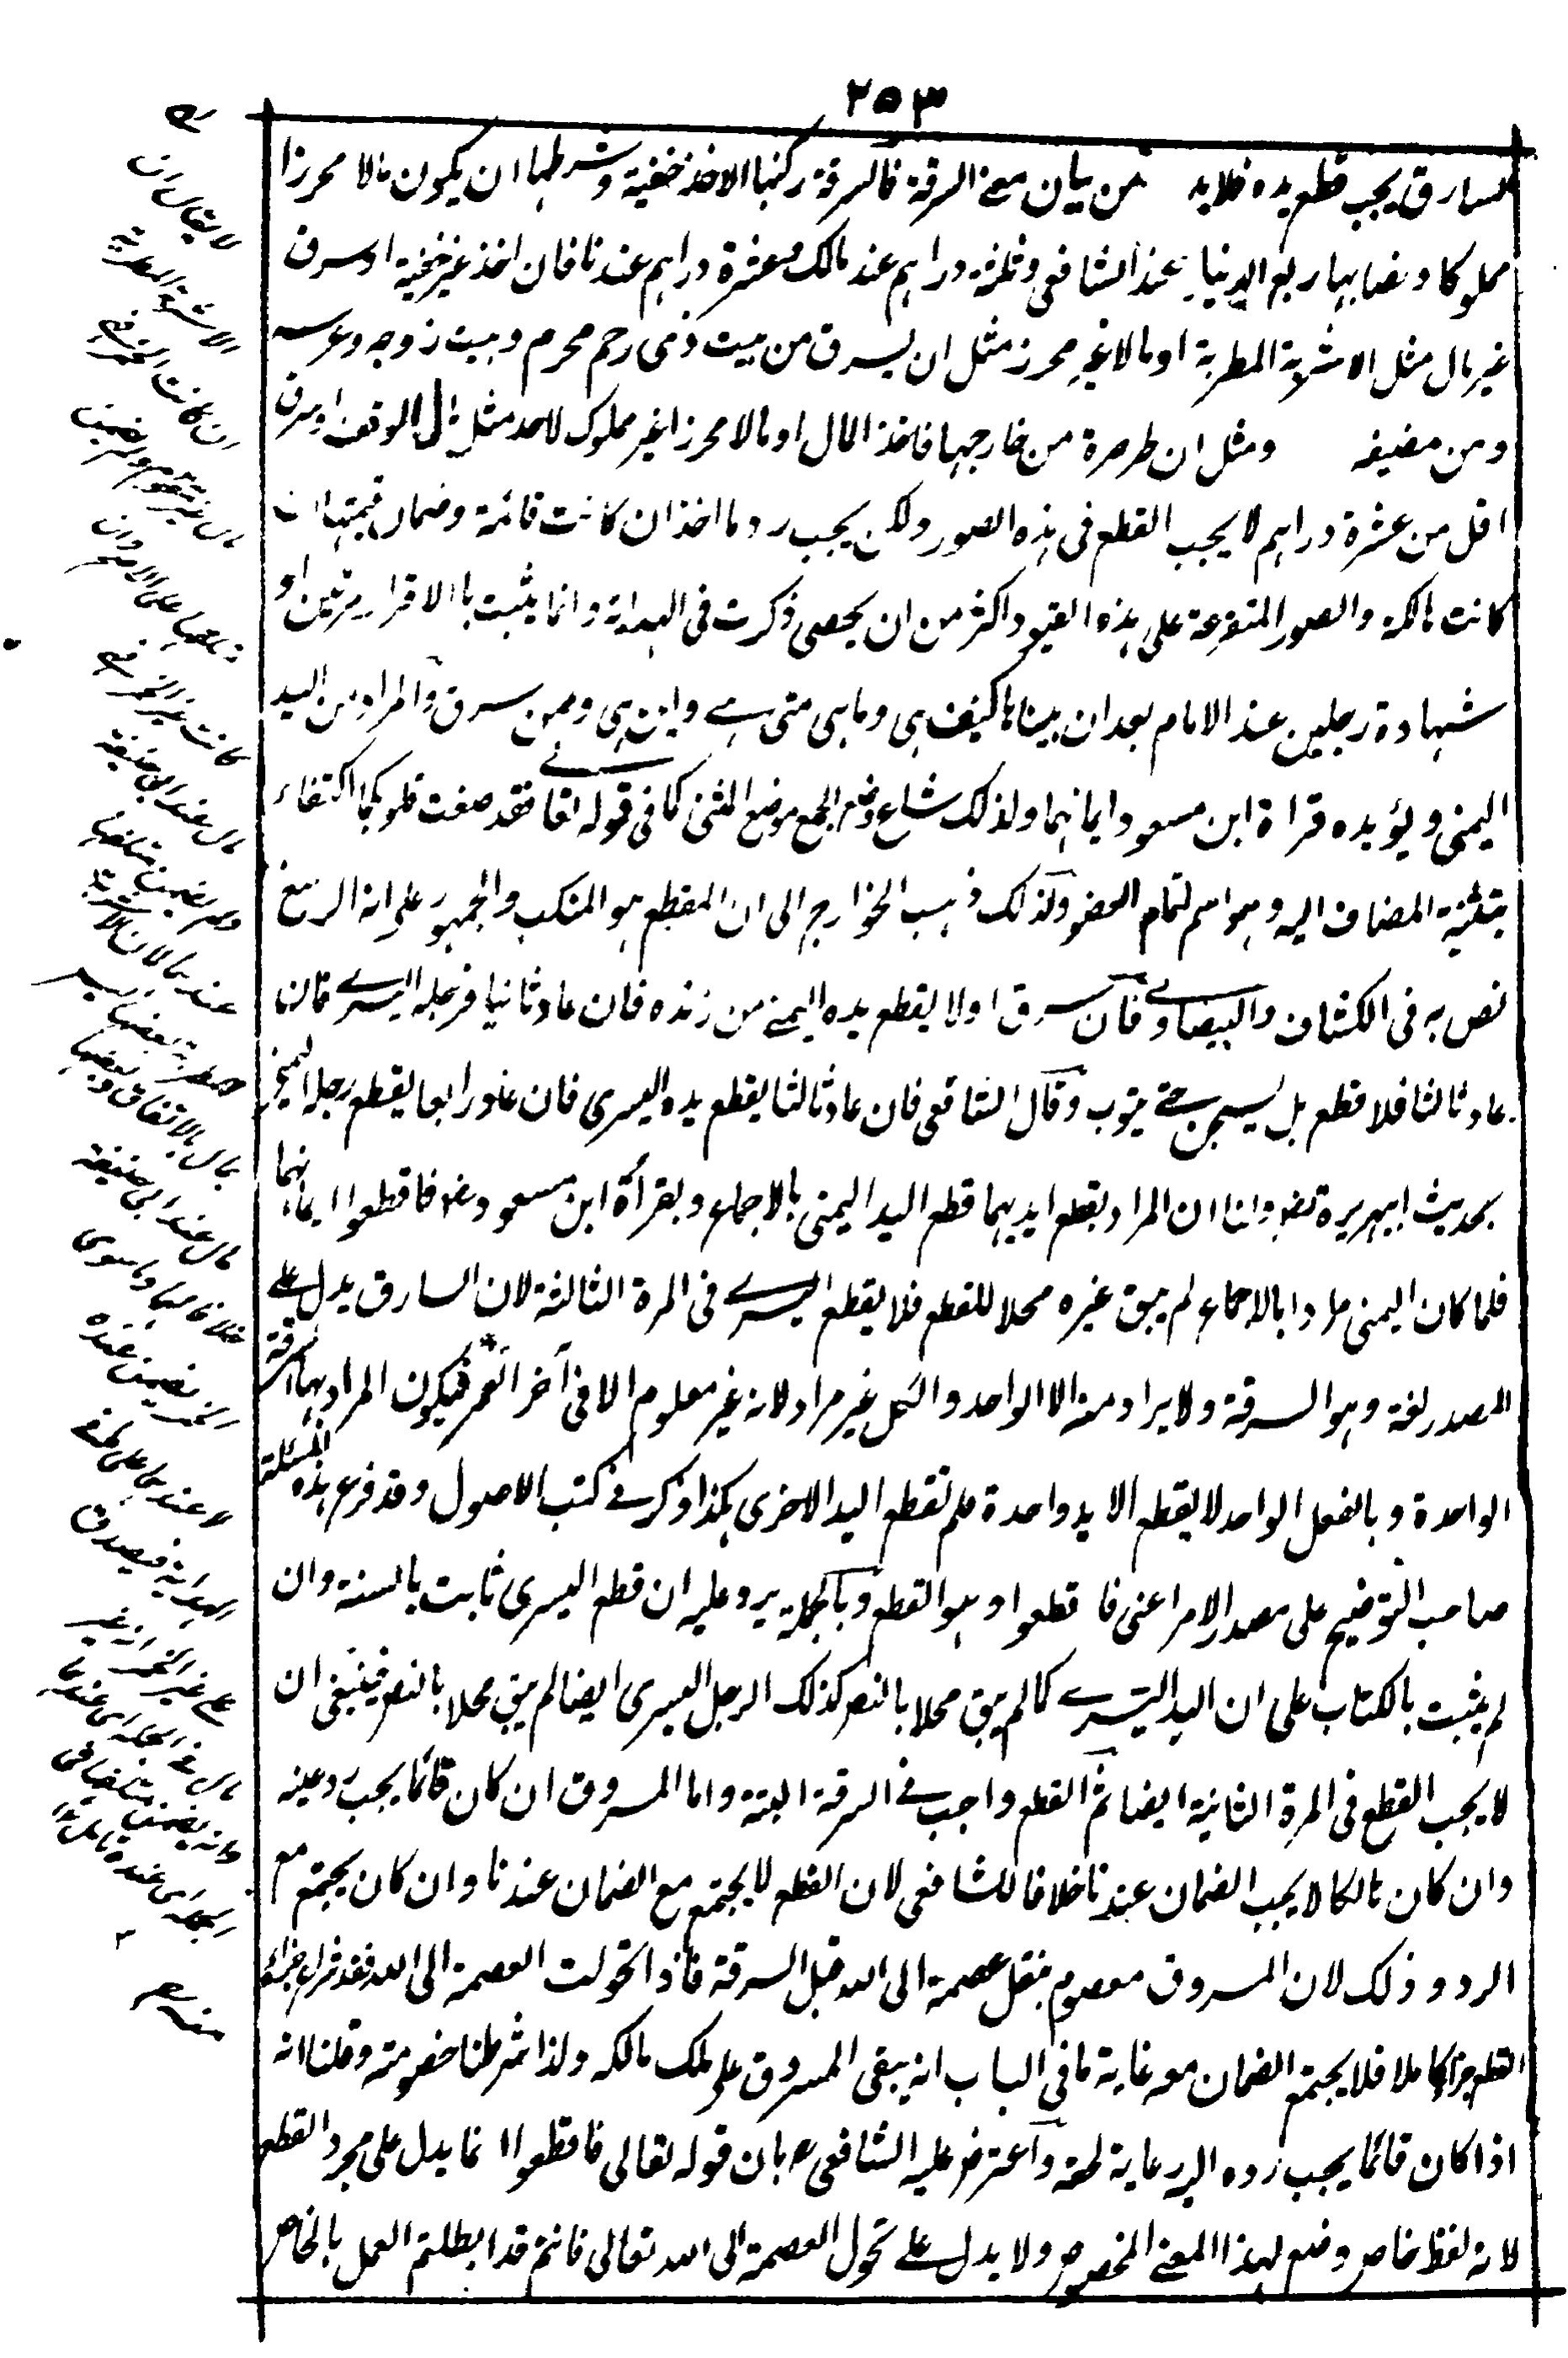 ٢٥٣
للسارق يجب قطع يده فلابد من بيان معنى السرقة فالسرقة ركنها الاخذ خفية وشرطها ان يكون مالا محرزا
مملوكا ونصابها ربع الدينار عند الشافعي وثلثة دراهم عند مالك وعشرة دراهم عندنا فان اخذ غير خفية او سرق
غير مال مثل الاشربة المطربة او مالا غير محرز مثل ان يسرق من بيت ذى رحم محرم وبيت زوجه وعرسه
ومن مضيفه ومثل ان طر صرة من خارجها فاخذ المال او مالا محرزا غير مملوك لاحد مثل مال الوقف او سرق
اقل من عشرة دراهم لا يجب القطع فى هذه الصور ولكن يجب رد ما اخذ ان كانت قائمة وضمان قيمتها ان
كانت هالكة والصور المتفرعة على هذه القيود اكثر من ان يحصى ذكرت فى الهداية وانما يثبت بالاقرار مرتين او
شهادة رجلين عند الامام بعد ان يبينا ها كيف هى وما هى متى هے واين هى وممن سرق والمراد من اليد
اليمنى ويؤيده قراة ابن مسعود ايمانهما ولذلك شاع وضع الجمع موضع المثنى كما فى قوله تعالى فقد صغت قلوبكما اكتفاء
بتثنية المضاف اليه وهو اسم لتمام العضو ولذلك ذهب الخوارج الى ان المقطع هو المنكب والجمهور على انه الرسغ
نص به فى الكشاف والبيضاوے فان سرق اولا يقطع يده اليمنے من زنده فان عاد ثانيا فرجله اليسرے فان
عاد ثالثا فلا قطع بل يسجن حتے يتوب وقال الشافعى فان عاد ثالثا يقطع يده اليسرى فان عاد رابعا يقطع رجله اليمنے
بحديث ابيهريرة رضـ ولنا ان المراد بقطع ايديهما قطع اليد اليمنى بالاجماع وبقرأة ابن مسعود رضـ فاقطعوا ايمانهما
فلما كان اليمنى مرادا بالاجماع لم يبق غيره محلا للقطع فلا يقطع اليسرے فى المرة الثالثة لان السارق يدل علے
المصدر لغة وهو السرقة ولا يراد منه الا الواحد والكل غير مراد لانه غير معلوم الا فى آخر العمر فيكون المراد بها السرقة
الواحدة وبالفعل الواحد لا يقطع الا يد واحدة فلم تقطع اليد الاخرى هكذا ذكر فى كتب الاصول وقد فرع هذه المسئلة
صاحب التوضيح على مصدر الامر اعنى فاقطعوا وهو القطع وبالجملة يرد عليه ان قطع اليسرى ثابت بالسنة وان
لم يثبت بالكتاب على ان اليد اليسرے كما لم يبق محلا بالنص كذلك الرجل اليسرى ايضا لم يبق محلا بالنص فينبغى ان
لا يجب القطع فى المرة الثانية ايضا ثم القطع واجب فے السرقة البتة واما المسروق ان كان قائما يجب رد عينه
وان كان هالكا لا يجب الضمان عندنا خلافا للشافعى لان القطع لا يجتمع مع الضمان عندنا وان كان يجتمع مع
الرد وذلك لان المسروق معصوم ينقل عصمته الى الله قبل السرقة فاذا تحولت العصمة الى الله فقد شرع جزاؤه
القطع جزاء كاملا فلا يجتمع الضمان معه غاية ما فى الباب انه يبقى المسروق على ملك مالكه ولذا شرطنا خصومته وقلنا انه
اذا كان قائما يجب رده اليه رعاية لحقه واعترض عليه الشافعى رح بان قوله تعالى فاقطعوا انما يدل على مجرد القطع
لانه لفظ خاص وضع لهذا المعنے المخصوص ولا يدل علے تحول العصمة الى الله تعالى فانتم قد ابطلتم العمل بالخاص
لا يقال ان
الاشربة المطربة
ان كانت الخمر فهى
مال غير متقوم ولا يضمن
كانت غير الخمر فهى
مال عند ابى حنيفة
بمال بالاتفاق وبعضها
مال عند ابى حنيفة
خلافا لهما وما سوى
الخمر يضمن عنده
لا عندهما على ما فى
الهداية فيصدق
على غير الخمر انه غير
مال فى الجملة اى عندهما
وانه يضمن متلفها فى
الجملة اى عنده
منه رح